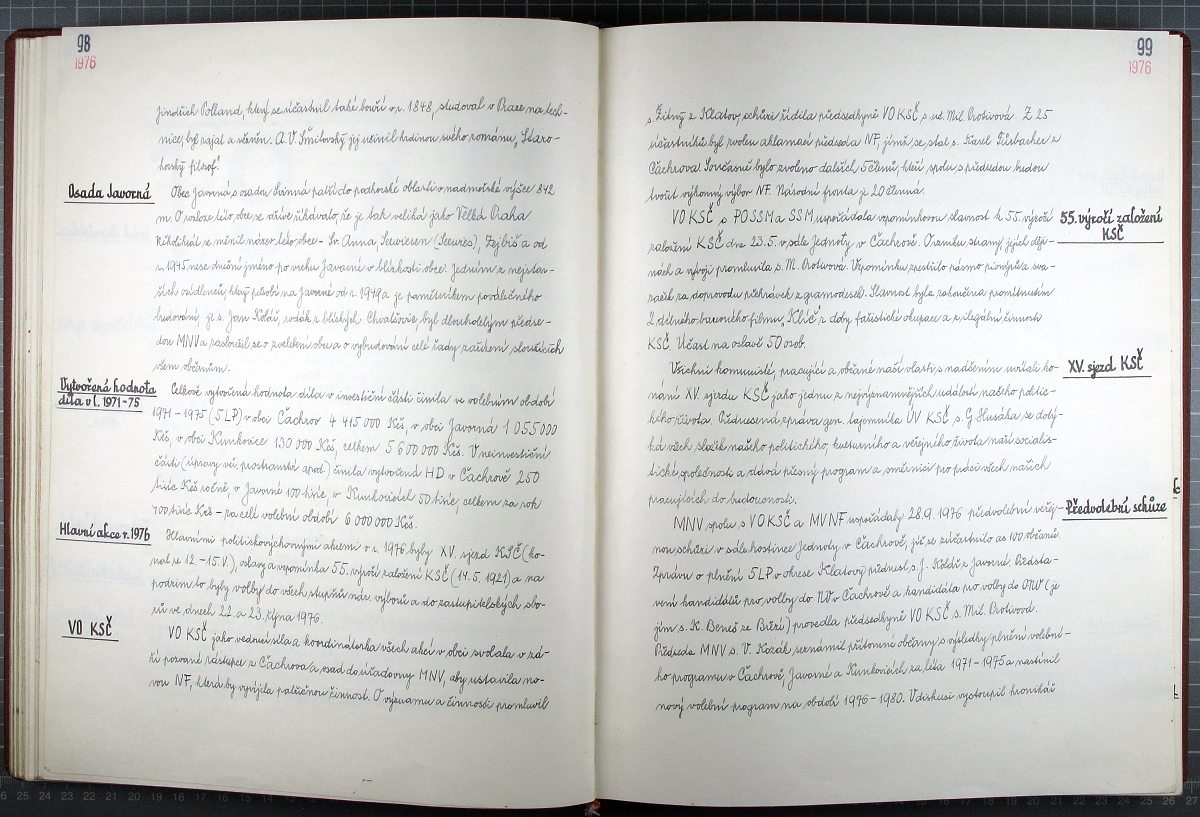 98
1976
Jindřich Polland, který se účastnil také bouří v r. 1848, studoval v Praze na tech-
nice, byl zajat a vězněn. A. V. Šmilovský jej učinil hrdinou svého románu „Staro-
horský filosof."
Osada Javorná
Obec Javorná s osadou Svinná patří do podhorské oblasti v nadmořské výšce 842
m. O rozloze této obce se dříve říkávalo, že je tak veliká jako Velká Praha.
Několikrát se měnil název této obce - Sv. Anna, Seewiesen (Seewies), Zejbiš a od
r. 1945 nese dnešní jméno po vrchu Javorné v blízkosti obce. Jedním z nejstar-
ších osídlenců, který působí na Javorné od r. 1949 a je pamětníkem poválečného
budování, je s. Jan Kolář, rodák z blízkých Chvalšovic, byl dlouholetým předse-
dou MNV a zasloužil se o zvelebení obce a o vybudování celé řady zařízení sloužících
všem občanům.
Vytvořená hodnota
díla v l. 1971-75
Celková vytvořená hodnota díla v investiční části činila ve volebním období
1971-1975 (5 LP) v obci Čachrov 4 415 000 Kčs, v obci Javorná 1 055 000
Kčs, v obci Kunkovice 130 000 Kčs, celkem 5 600 000 Kčs. V neinvestiční
části (úpravy veř. prostranství apod.) činila vytvořená HD v Čachrově 250
tisíc Kčs ročně, v Javorné 100 tisíc, v Kunkovicích 50 tisíc, celkem za rok
400 tisíc Kčs - za celé volební období 6 000 000 Kčs.
Hlavní akce r. 1976
Hlavními politickovýchovnými akcemi v r. 1976 byly XV. sjezd KSČ (ko-
nal se 12.-15. V.), oslavy a vzpomínka 55. výročí založení KSČ (14. 5. 1921) a na
podzim to byly volby do všech stupňů nár. výborů a do zastupitelských sbo-
rů ve dnech 22. a 23. října 1976.
VO KSČ
VO KSČ jako vedoucí síla a koordinátorka všech akcí v obci svolala v zá-
ří pozvané zástupce z Čachrova a osad do úřadovny MNV, aby ustavila no-
vou NF, která by vyvíjela patřičnou činnost. O významu a činnosti promluvil
99
1976
s. Žitný z Klatov, schůzi řídila předsedkyně VO KSČ s. uč. Mil. Protivová. Z 25
účastníků byl zvolen aklamací předseda NF, jímž se stal s. Karel Fürbacher z
Čachrova. Současně bylo zvoleno dalších 5 členů, kteří spolu s předsedou budou
tvořit výkonný výbor NF. Národní fronta je 20 členná.
55. výročí založení
KSČ
VO KSČ s POSSM a SSM uspořádala vzpomínkovou slavnost k 55. výročí
založení KSČ dne 23. 5. v sále Jednoty v Čachrově. O vzniku strany, jejích ději-
nách a vývoji promluvila s. M. Protivová. Vzpomínku zpestřilo pásmo pionýrů a sva-
začek za doprovodu přehrávek z gramodesek. Slavnost byla zakončena promítnutím
2 dílného barevného filmu „Klíč" z doby fašistické okupace a z ilegální činnosti
KSČ. Účast na oslavě 50 osob.
XV. sjezd KSČ
Všichni komunisté, pracující a občané naší vlasti s nadšením uvítali ko-
nání XV. sjezdu KSČ jako jednu z nejvýznamnějších událostí našeho politic-
kého života. Přednesená zpráva gen. tajemníka ÚV KSČ s. G. Husáka se dotý-
ká všech složek našeho politického, kulturního a veřejného života naší socialis-
tické společnosti a dává přesný program a směrnici pro práci všech našich
pracujících do budoucnosti.
Předvolební schůze
MNV spolu s VO KSČ a MV NF uspořádaly 28. 9. 1976 předvolební veřej-
nou schůzi v sále hostince Jednoty v Čachrově, jíž se zúčastnilo as 100 občanů.
Zprávu o plnění 5 LP v okrese Klatovy přednesl s. J. Kolář z Javorné. Předsta-
vení kandidátů pro volby do NV v Čachrově a kandidáta pro volby do ONV (je
jím s. K. Beneš ze Březí) provedla předsedkyně VO KSČ s. Mil. Protivová.
Předseda MNV s. V. Kozák seznámil přítomné občany s výsledky plnění volební-
ho programu v Čachrově, Javorné a Kunkovicích za léta 1971-1975 a nastínil
nový volební program na období 1976-1980. V diskusi vystoupil kronikář